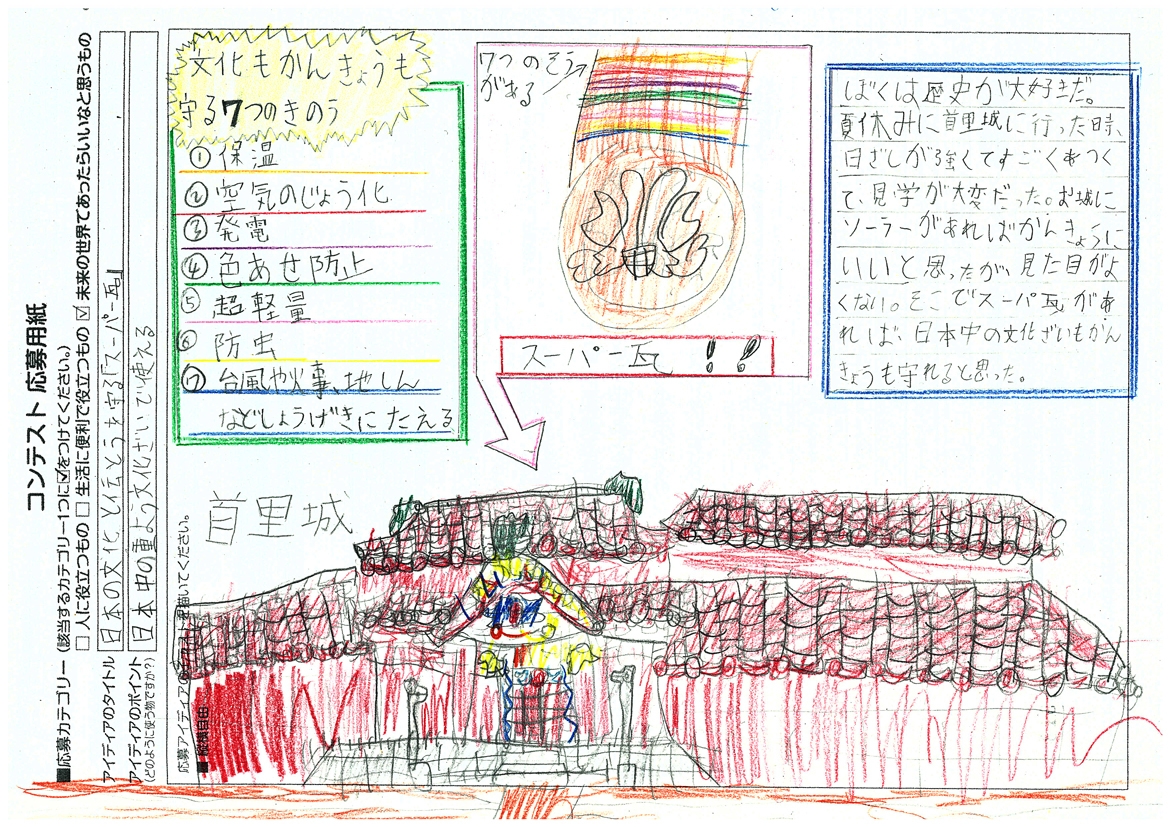 コンテスト 応募用紙
■応募カテゴリー (該当するカテゴリー1つに☑をつけてください。)
□ 人に役立つもの □ 生活に便利で役立つもの ☑ 未来の世界であったらいいなと思うもの
アイディアのタイトル
日本の文化と伝とうを守る「スーパー瓦」
アイディアのポイント
(どのように使う物ですか?)
日本中の重よう文化ざいで使える
応募アイディアの
描いてください。
■縦横自由
文化もかんきょうも
守る7つのきのう
①保温
②空気のじょう化
③発電
④色あせ防止
⑤超軽量
⑥防虫
⑦台風や火事、地しん
などしょうげきにたえる
7つのそう
がある
スーパー瓦!!
ぼくは歴史が大好きだ。
夏休みに首里城に行った時、
日ざしが強くてすごくあつく
て、見学が大変だった。お城に
ソーラーがあればかんきょうに
いいと思ったが、見た目がよ
くない。そこでスーパ瓦があ
れば、日本中の文化ざいもかん
きょうも守れると思った。
首里城